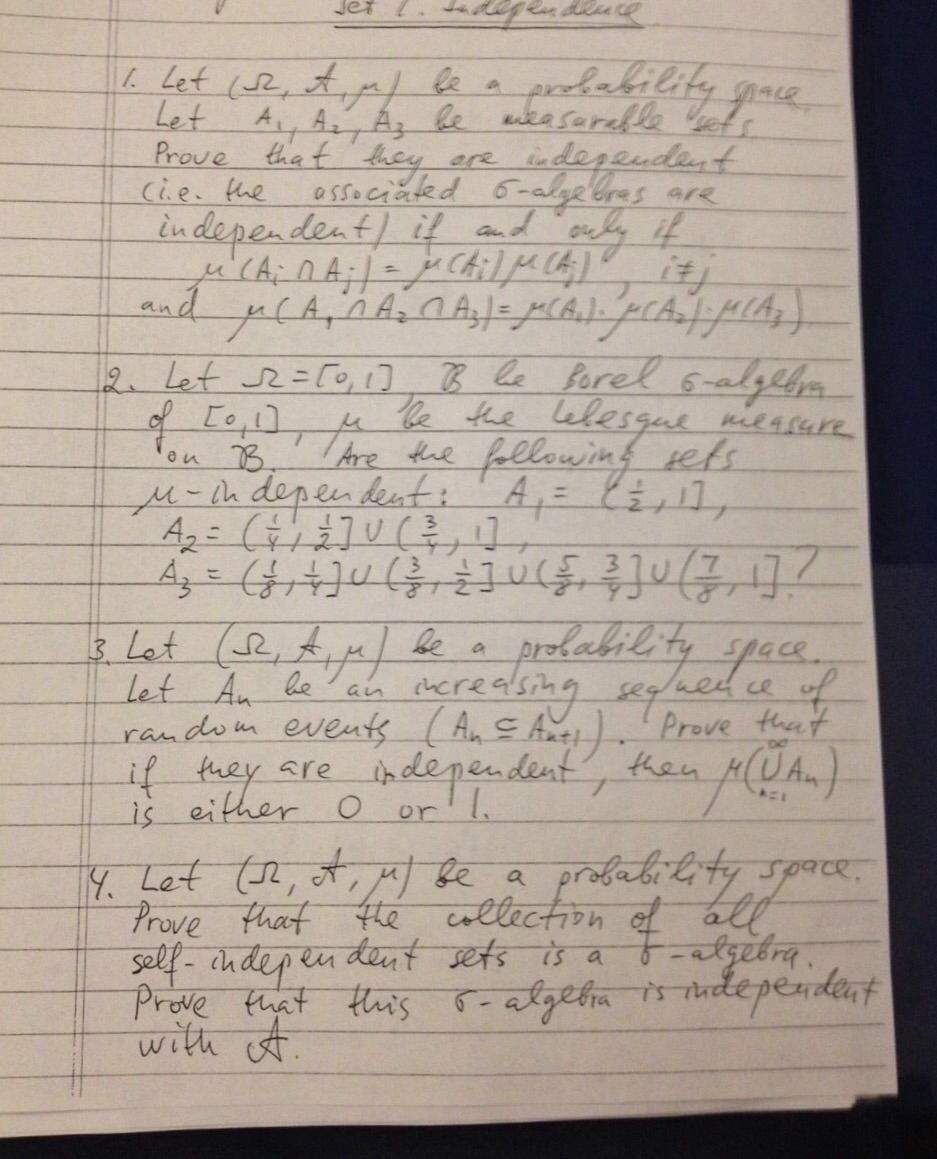 Set 1. Independence
1. Let (Ω, A, μ) be a probability space.
Let A₁, A₂, A₃ be measurable sets.
Prove that they are independent
(i.e. the associated σ-algebras are
independent) if and only if
μ(Aᵢ ∩ Aⱼ) = μ(Aᵢ) μ(Aⱼ), i≠j
and μ(A₁ ∩ A₂ ∩ A₃) = μ(A₁)·μ(A₂)·μ(A₃)
2. Let Ω = [0,1], B be Borel σ-algebra
of [0,1], μ be the Lebesgue measure
on B. Are the following sets
μ-independent: A₁ = (1/2, 1],
A₂ = (1/4, 1/2] ∪ (3/4, 1],
A₃ = (1/8, 1/4] ∪ (3/8, 1/2] ∪ (5/8, 3/4] ∪ (7/8, 1]?
3. Let (Ω, A, μ) be a probability space.
Let Aₙ be an increasing sequence of
random events (Aₙ ⊆ Aₙ₊₁). Prove that
if they are independent, then μ(⋃_{n=1}^∞ Aₙ)
is either 0 or 1.
4. Let (Ω, A, μ) be a probability space.
Prove that the collection of all
self-independent sets is a σ-algebra.
Prove that this σ-algebra is independent
with A.